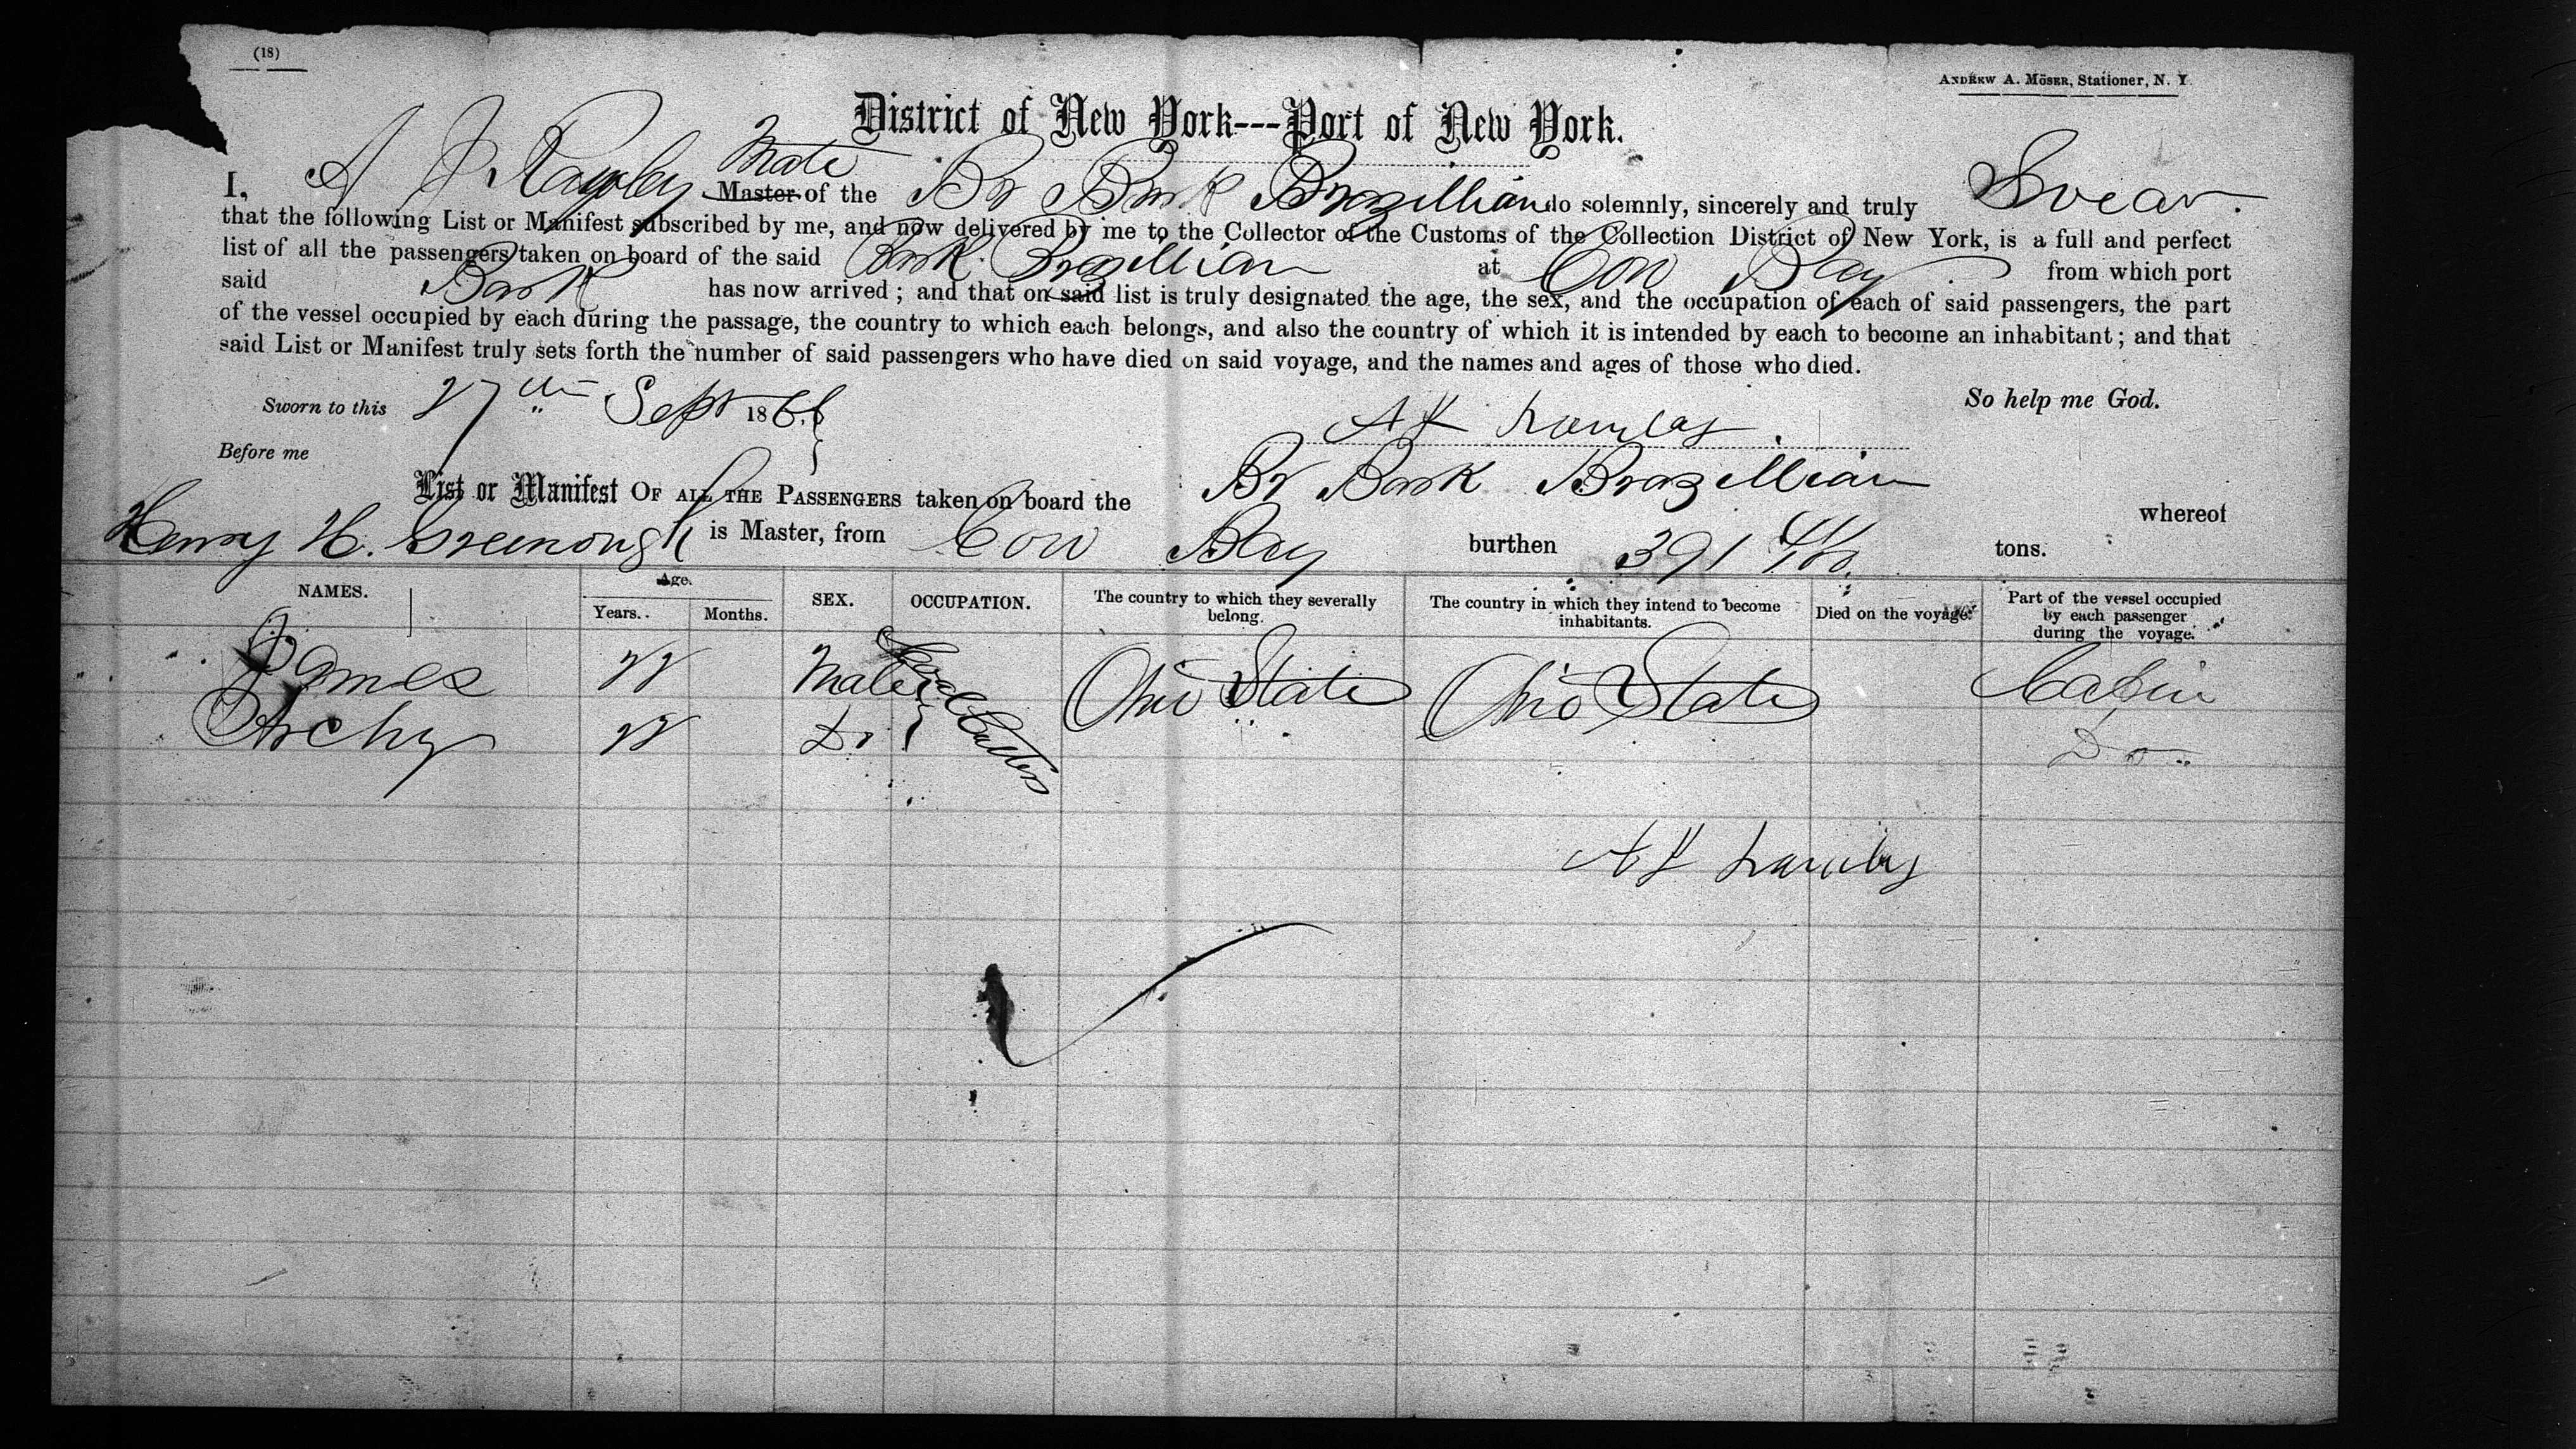 (18)
ANDREW A. MÖSER, Stationer, N. Y
District of New York---Port of New York.
I, A J Mate Master of the Br Bark Brazillian do solemnly, sincerely and truly Swear.
that the following List or Manifest subscribed by me, and now delivered by me to the Collector of the Customs of the Collection District of New York, is a full and perfect
list of all the passengers taken on board of the said Bark Brazillian at Cow Bay from which port
said Bark has now arrived ; and that on said list is truly designated the age, the sex, and the occupation of each of said passengers, the part
of the vessel occupied by each during the passage, the country to which each belongs, and also the country of which it is intended by each to become an inhabitant ; and that
said List or Manifest truly sets forth the number of said passengers who have died on said voyage, and the names and ages of those who died.
Sworn to this 27th Sept 1866 So help me God.
Before me
List or Manifest OF ALL THE PASSENGERS taken on board the Br Bark Brazillian whereof
Henry H. Greenough is Master, from Cow Bay burthen 391 tons.
NAMES. Age. Years. Months. SEX. OCCUPATION. The country to which they severally belong. The country in which they intend to become inhabitants. Died on the voyage. Part of the vessel occupied by each passenger during the voyage.
James Male Ohio State Ohio State Cabin
Archy Do Do